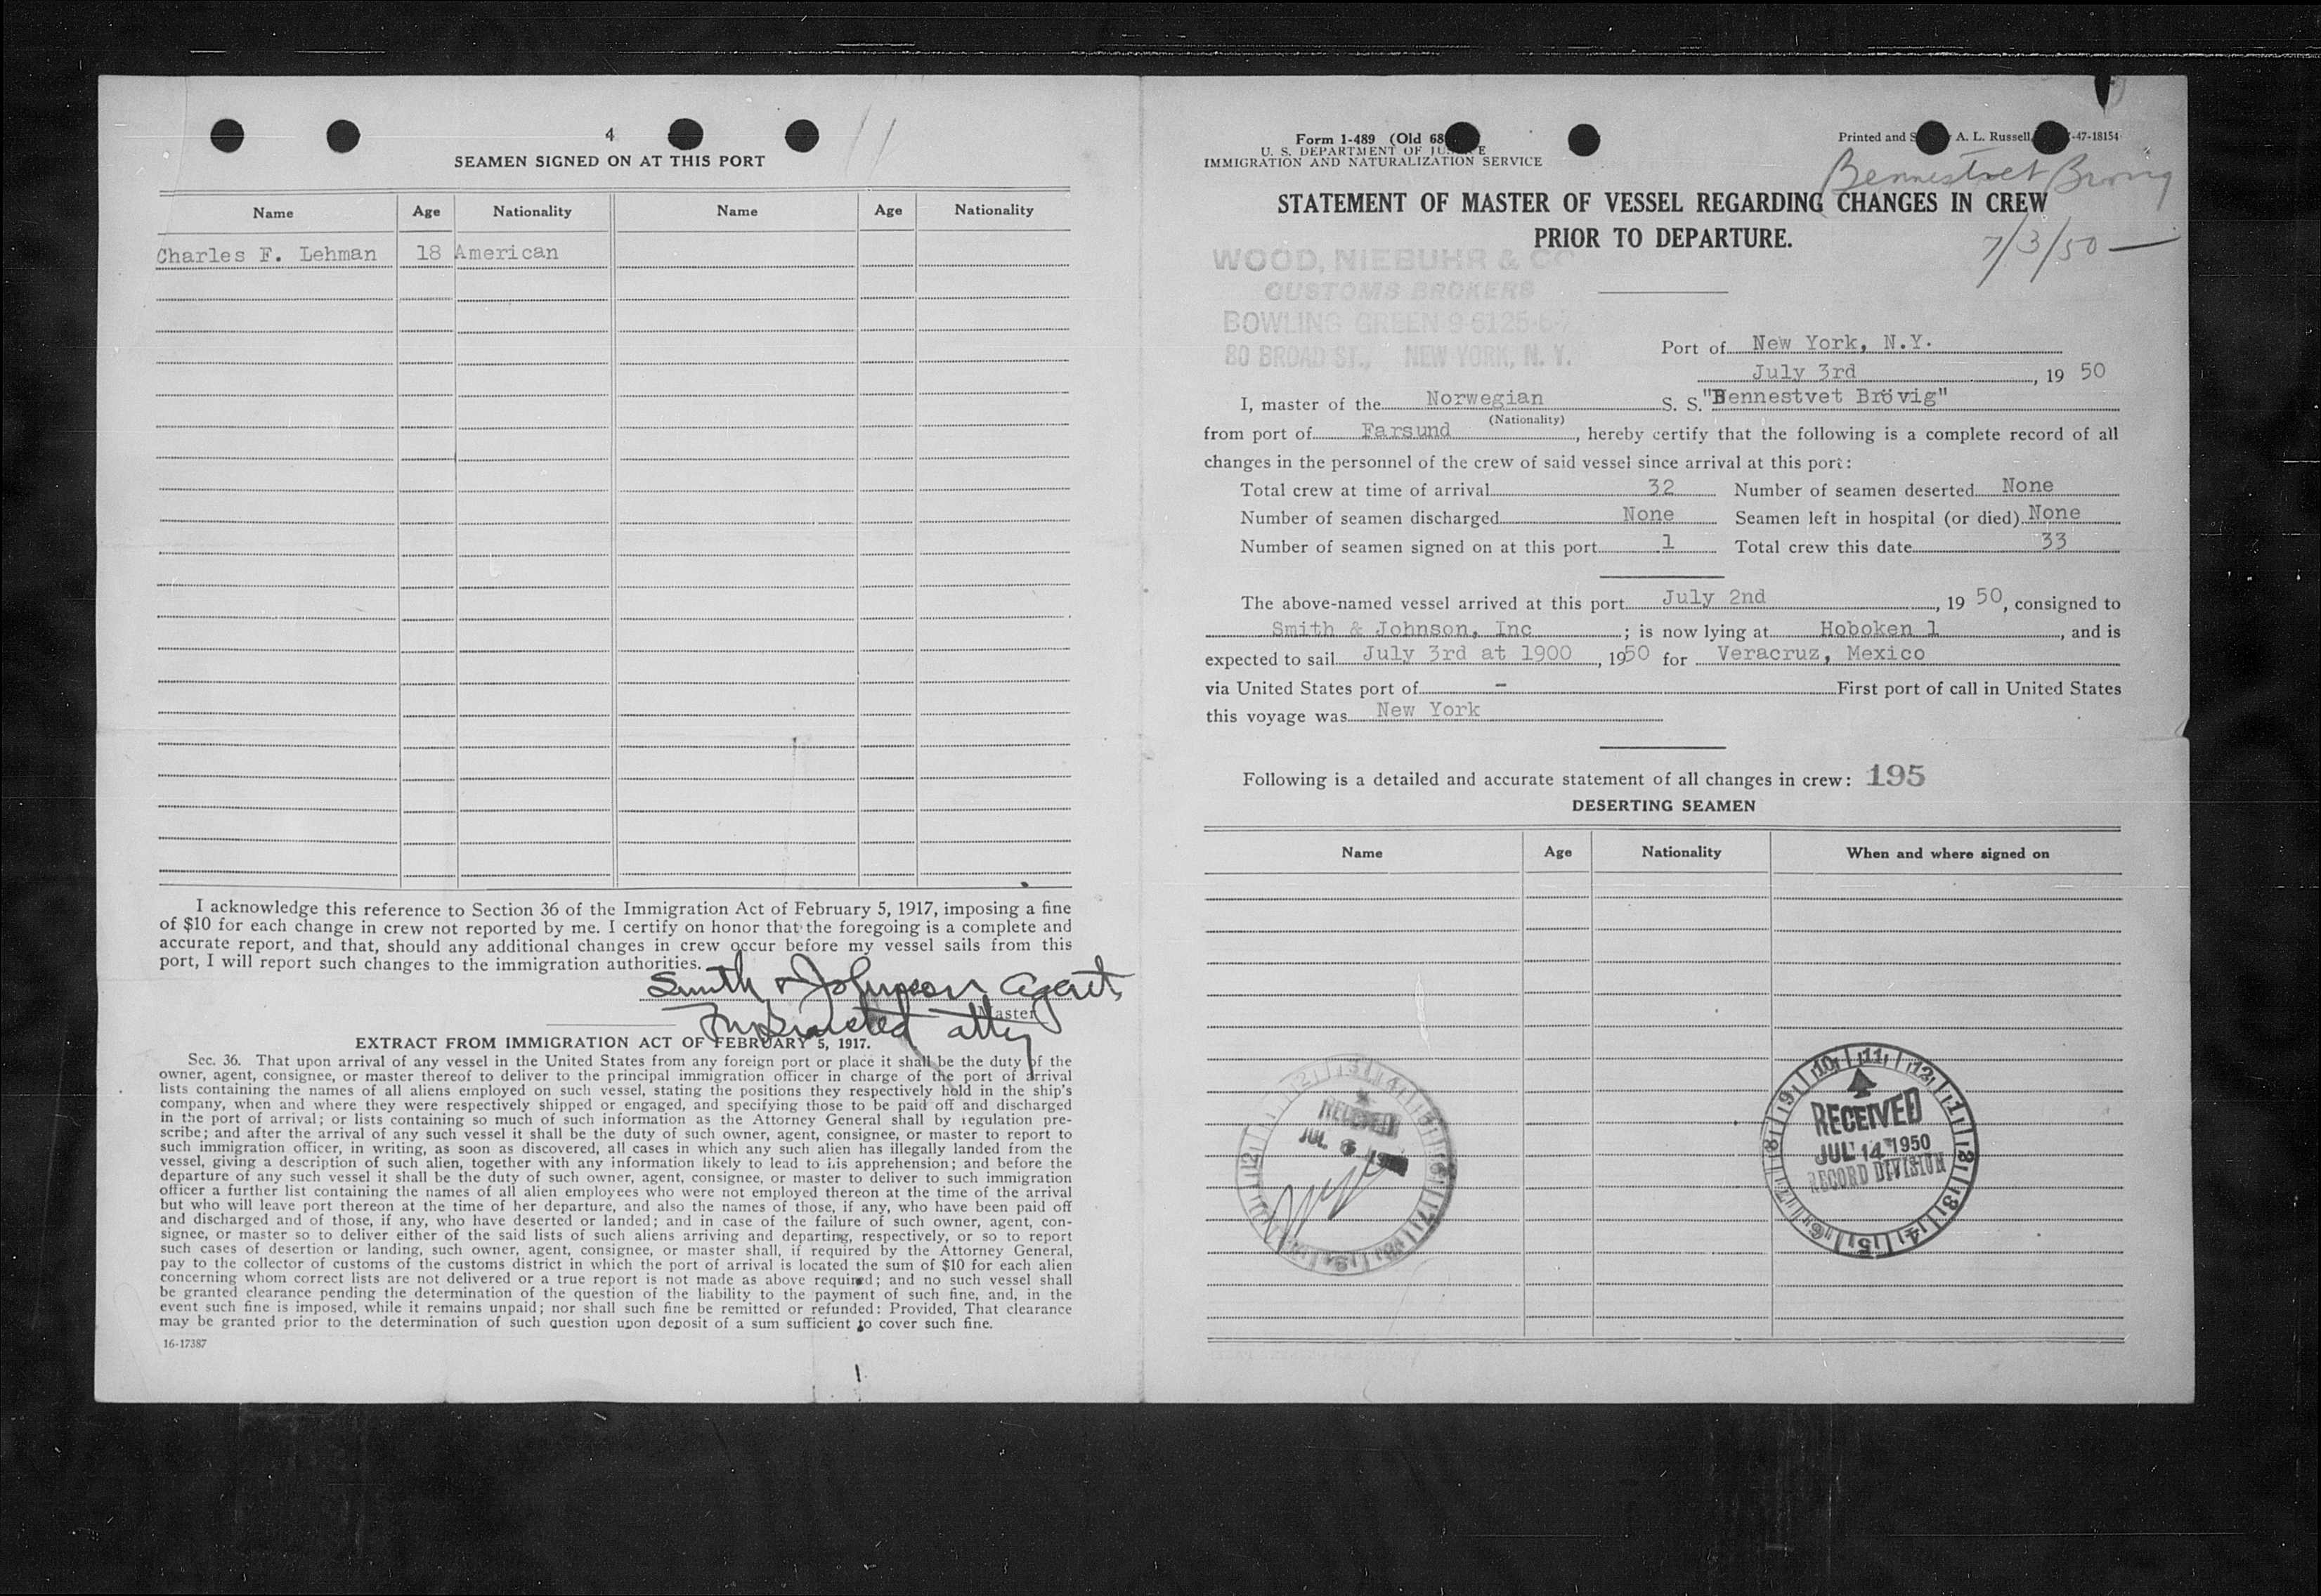 4
11
SEAMEN SIGNED ON AT THIS PORT
Name Age Nationality Name Age Nationality
Charles F. Lehman 18 American
I acknowledge this reference to Section 36 of the Immigration Act of February 5, 1917, imposing a fine
of $10 for each change in crew not reported by me. I certify on honor that the foregoing is a complete and
accurate report, and that, should any additional changes in crew occur before my vessel sails from this
port, I will report such changes to the immigration authorities.
Smith & Johnson Agent
Master
atty
EXTRACT FROM IMMIGRATION ACT OF FEBRUARY 5, 1917.
Sec. 36. That upon arrival of any vessel in the United States from any foreign port or place it shall be the duty of the
owner, agent, consignee, or master thereof to deliver to the principal immigration officer in charge of the port of arrival
lists containing the names of all aliens employed on such vessel, stating the positions they respectively hold in the ship's
company, when and where they were respectively shipped or engaged, and specifying those to be paid off and discharged
in the port of arrival; or lists containing so much of such information as the Attorney General shall by regulation pre-
scribe; and after the arrival of any such vessel it shall be the duty of such owner, agent, consignee, or master to report to
such immigration officer, in writing, as soon as discovered, all cases in which any such alien has illegally landed from the
vessel, giving a description of such alien, together with any information likely to lead to his apprehension; and before the
departure of any such vessel it shall be the duty of such owner, agent, consignee, or master to deliver to such immigration
officer a further list containing the names of all alien employees who were not employed thereon at the time of the arrival
but who will leave port thereon at the time of her departure, and also the names of those, if any, who have been paid off
and discharged and of those, if any, who have deserted or landed; and in case of the failure of such owner, agent, con-
signee, or master so to deliver either of the said lists of such aliens arriving and departing, respectively, or so to report
such cases of desertion or landing, such owner, agent, consignee, or master shall, if required by the Attorney General,
pay to the collector of customs of the customs district in which the port of arrival is located the sum of $10 for each alien
concerning whom correct lists are not delivered or a true report is not made as above required; and no such vessel shall
be granted clearance pending the determination of the question of the liability to the payment of such fine, and, in the
event such fine is imposed, while it remains unpaid; nor shall such fine be remitted or refunded: Provided, That clearance
may be granted prior to the determination of such question upon deposit of a sum sufficient to cover such fine.
16-17387
Form 1-489 (Old 68
U. S. DEPARTMENT OF JUSTICE
IMMIGRATION AND NATURALIZATION SERVICE
Printed and S A. L. Russell -47-18154
Bennestvet Brovig
7/3/50
STATEMENT OF MASTER OF VESSEL REGARDING CHANGES IN CREW
PRIOR TO DEPARTURE.
WOOD, NIEBUHR & CO
CUSTOMS BROKERS
BOWLING GREEN 9-6125-6-7
80 BROAD ST., NEW YORK, N. Y.
Port of New York, N.Y.
July 3rd, 19 50
I, master of the Norwegian S. S. "Bennestvet Brövig"
(Nationality)
from port of Farsund, hereby certify that the following is a complete record of all
changes in the personnel of the crew of said vessel since arrival at this port:
Total crew at time of arrival 32 Number of seamen deserted None
Number of seamen discharged None Seamen left in hospital (or died) None
Number of seamen signed on at this port 1 Total crew this date 33
The above-named vessel arrived at this port July 2nd, 19 50, consigned to
Smith & Johnson, Inc; is now lying at Hoboken 1, and is
expected to sail July 3rd at 1900, 1950 for Veracruz, Mexico
via United States port of - First port of call in United States
this voyage was New York
Following is a detailed and accurate statement of all changes in crew: 195
DESERTING SEAMEN
Name Age Nationality When and where signed on
RECEIVED
JUL 6
RECEIVED
JUL 14 1950
RECORD DIVISION